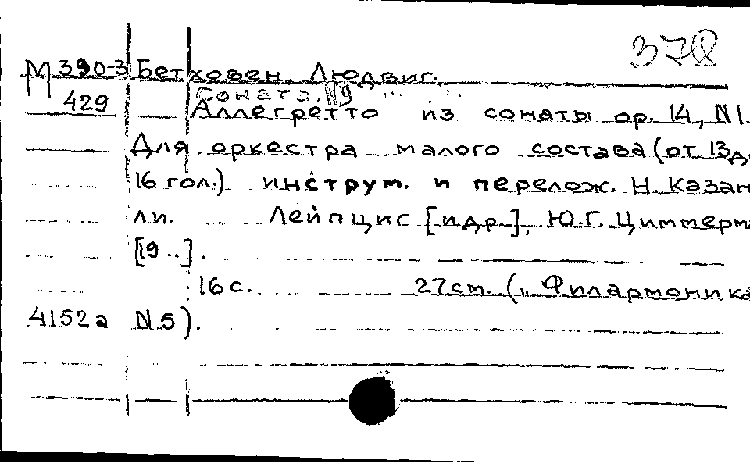 378
М 390-3 Бетховен, Людвиг.
429 Соната, №9
Аллегретто из сонаты ор. 14, N1.
Для оркестра малого состава (от 13 до
16 гол.) инструм. и перелож. Н. Казан
ли. Лейпциг [и др.], Ю.Г. Циммерм
[19 ..].
16 с. 27 ст. („Филармоника
4152а N5).